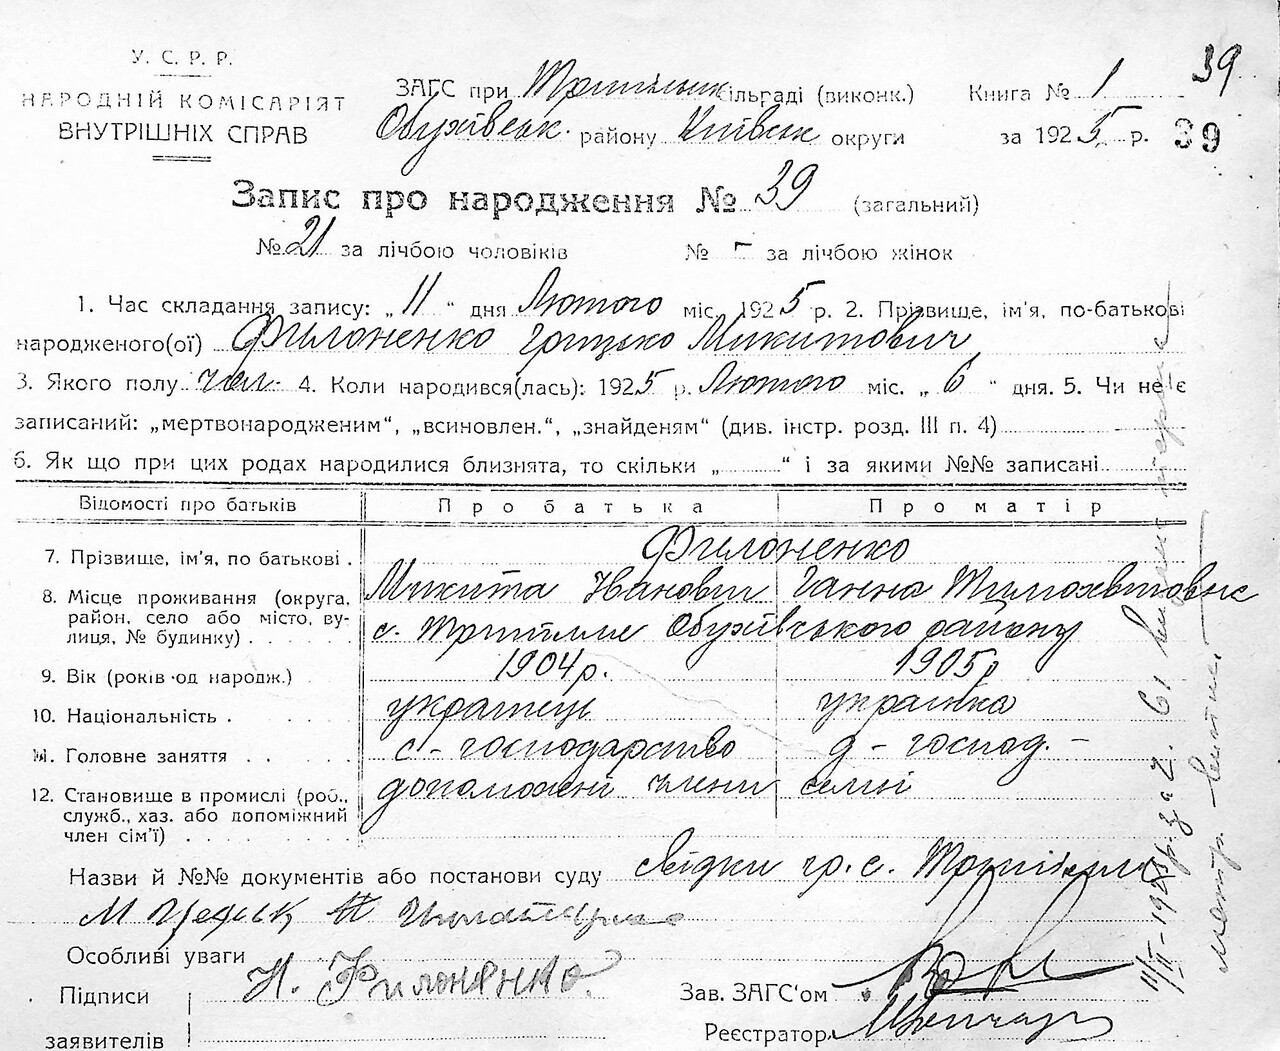 У. С. Р. Р.
НАРОДНІЙ КОМІСАРІЯТ
ВНУТРІШНІХ СПРАВ
ЗАГС при Трипільськ сільраді (виконк.)
Обухівськ. району Київськ округи
Книга № 1
за 1925 р.
39
39
Запис про народження № 39 (загальний)
№ 21 за лічбою чоловіків № – за лічбою жінок
1. Час складання запису: „11“ дня Лютого міс. 1925 р. 2. Прізвище, ім'я, по-батькові
народженого(ої) Филоненко Грицько Микитович
3. Якого полу чол. 4. Коли народився(лась): 1925 р. Лютого міс. „6“ дня. 5. Чи не є
записаний: „мертвонародженим“, „всиновлен.“, „знайденям“ (див. інстр. розд. III п. 4)
6. Як що при цих родах народилися близнята, то скільки „ “ і за якими №№ записані
Відомості про батьків Про батька Про матір
7. Прізвище, ім'я, по батькові . Филоненко
Микита Іванович Ганна
8. Місце проживання (округа, район, село або місто, вулиця, № будинку) . с. Трипілле Обухівського району
9. Вік (років од народж.) 1904 р. 1905 р
10. Національність . українець українка
11. Головне заняття с-господарство д-господ. -
12. Становище в промислі (роб., служб., хаз. або допоміжний член сім'ї) допоможні члени семії
Назви й №№ документів або постанови суду свідки гр. с. Трипілля
Особливі уваги
Підписи
заявителів
Н. Филоненко.
Зав. ЗАГС'ом
Реєстратор